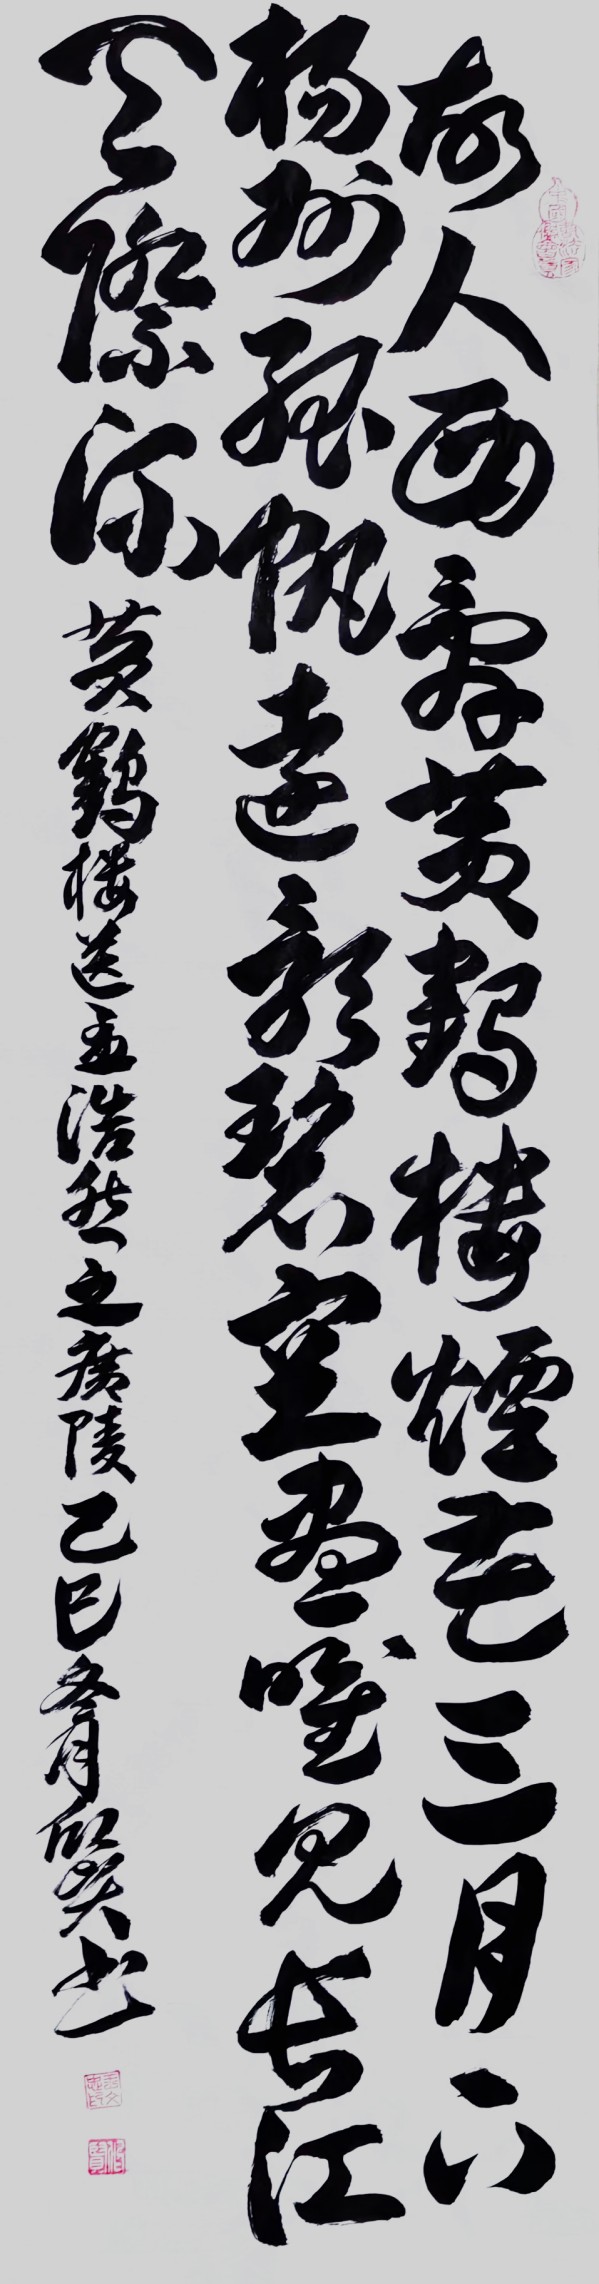 故人西辞黄鶴楼煙花三月下
楊州孤帆遠影碧空盡唯見長江
天際流 黄鶴楼送孟浩然之廣陵 乙巳冬月 欣賢書